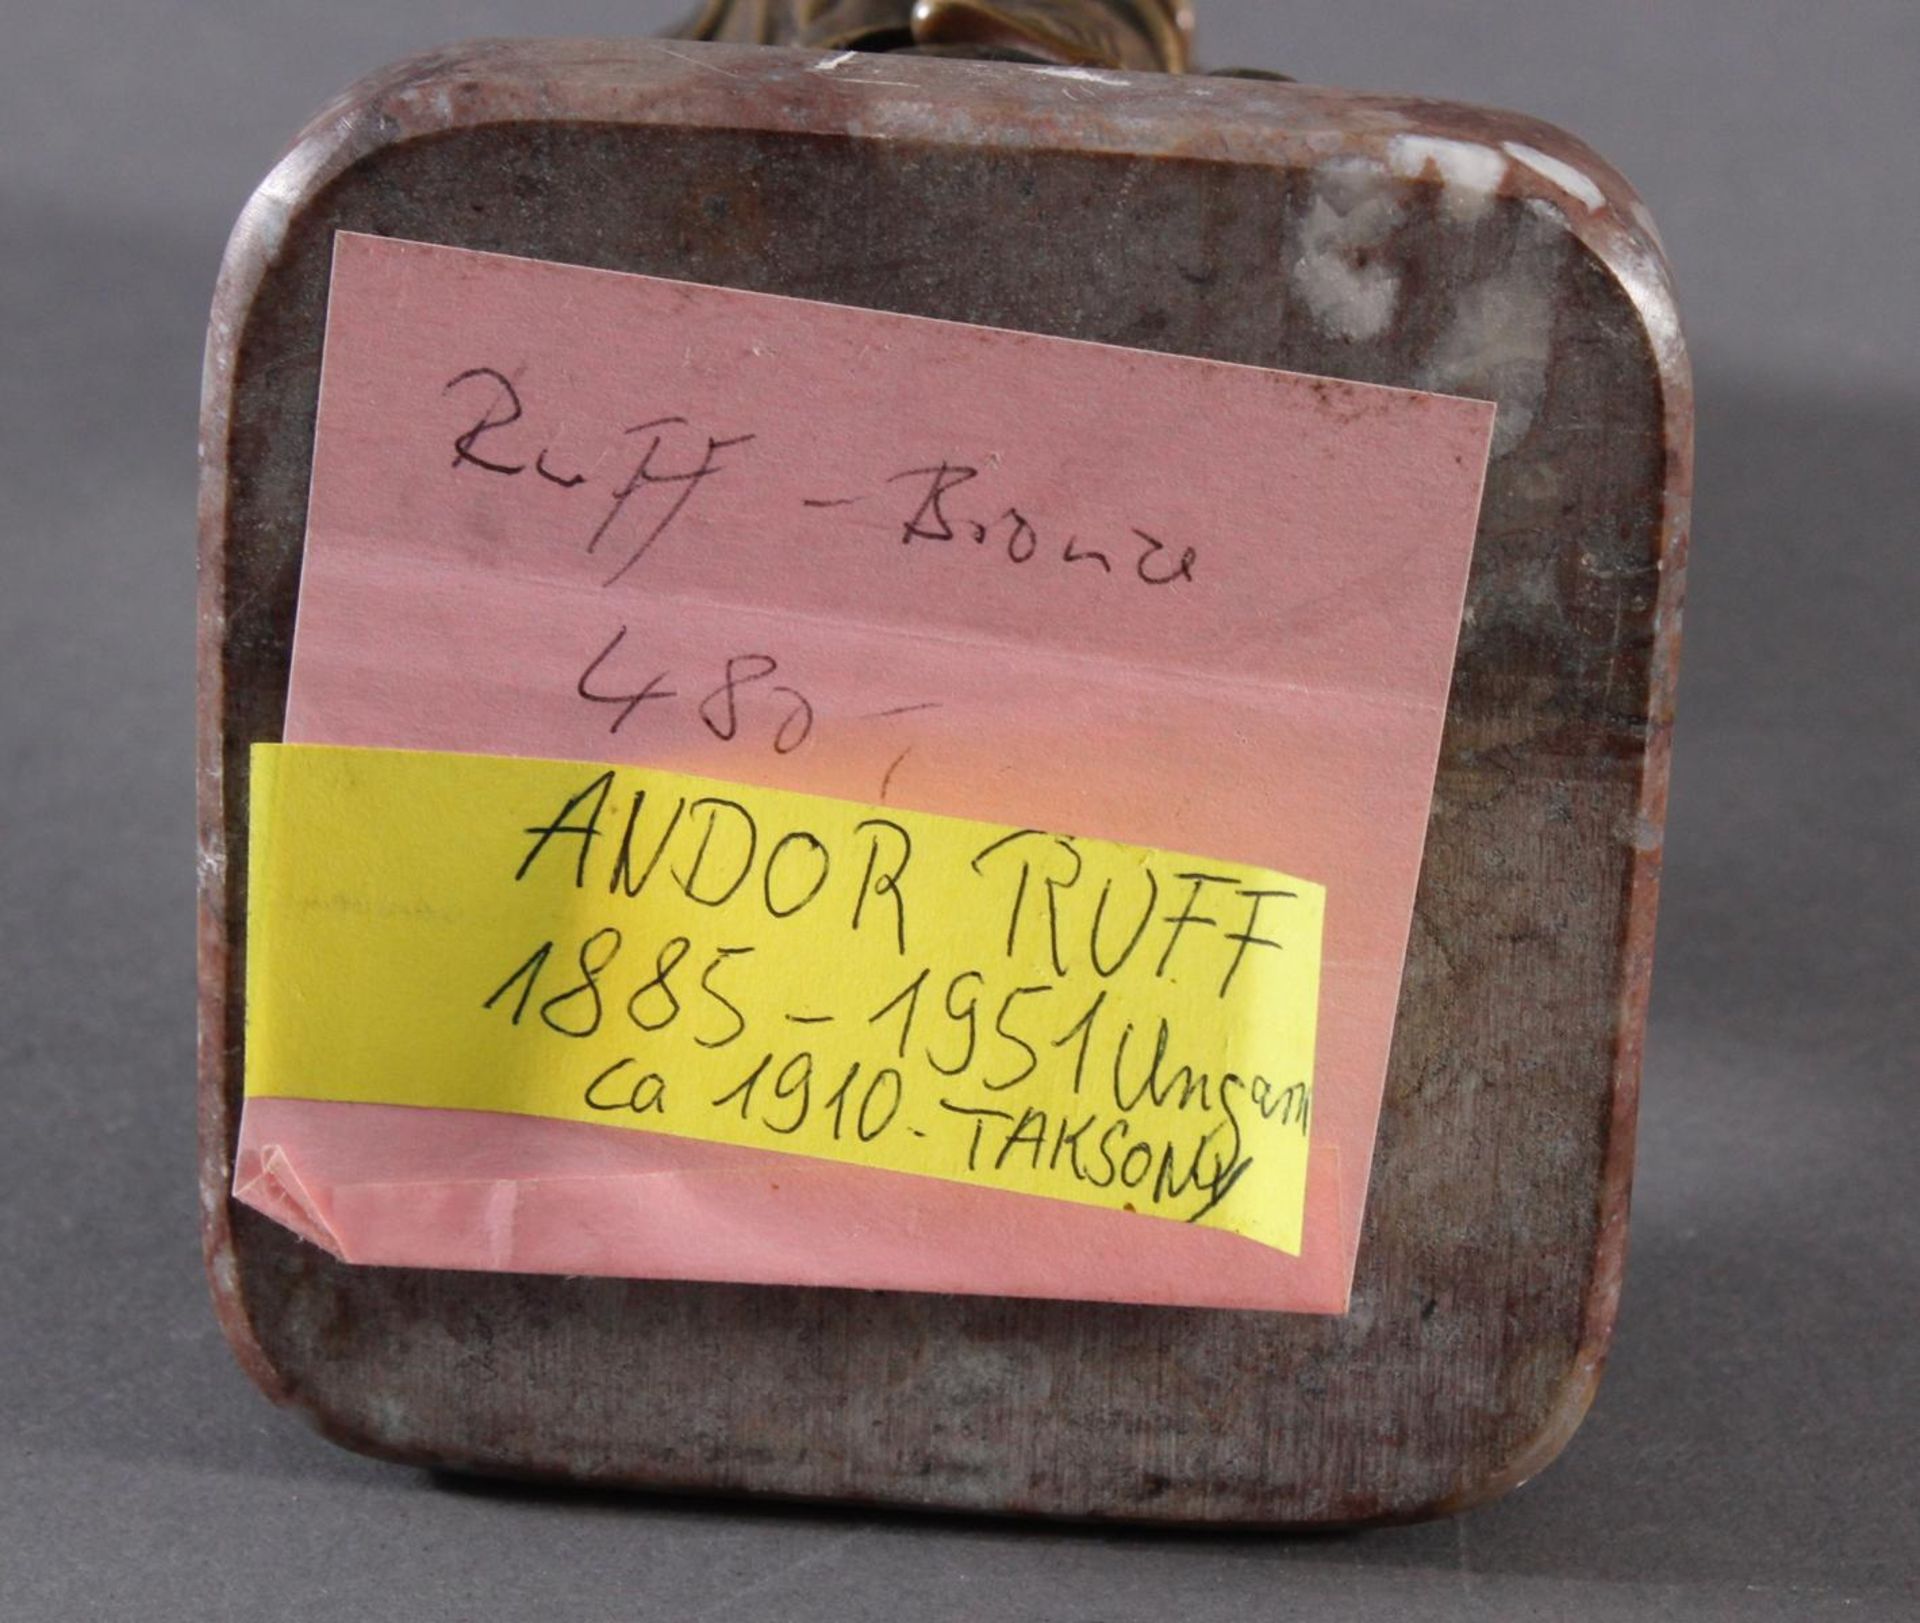 Ruff - Bronze
480,-
ANDOR RUFF
1885-1951 Ungarn
ca 1910 - TAKSONY